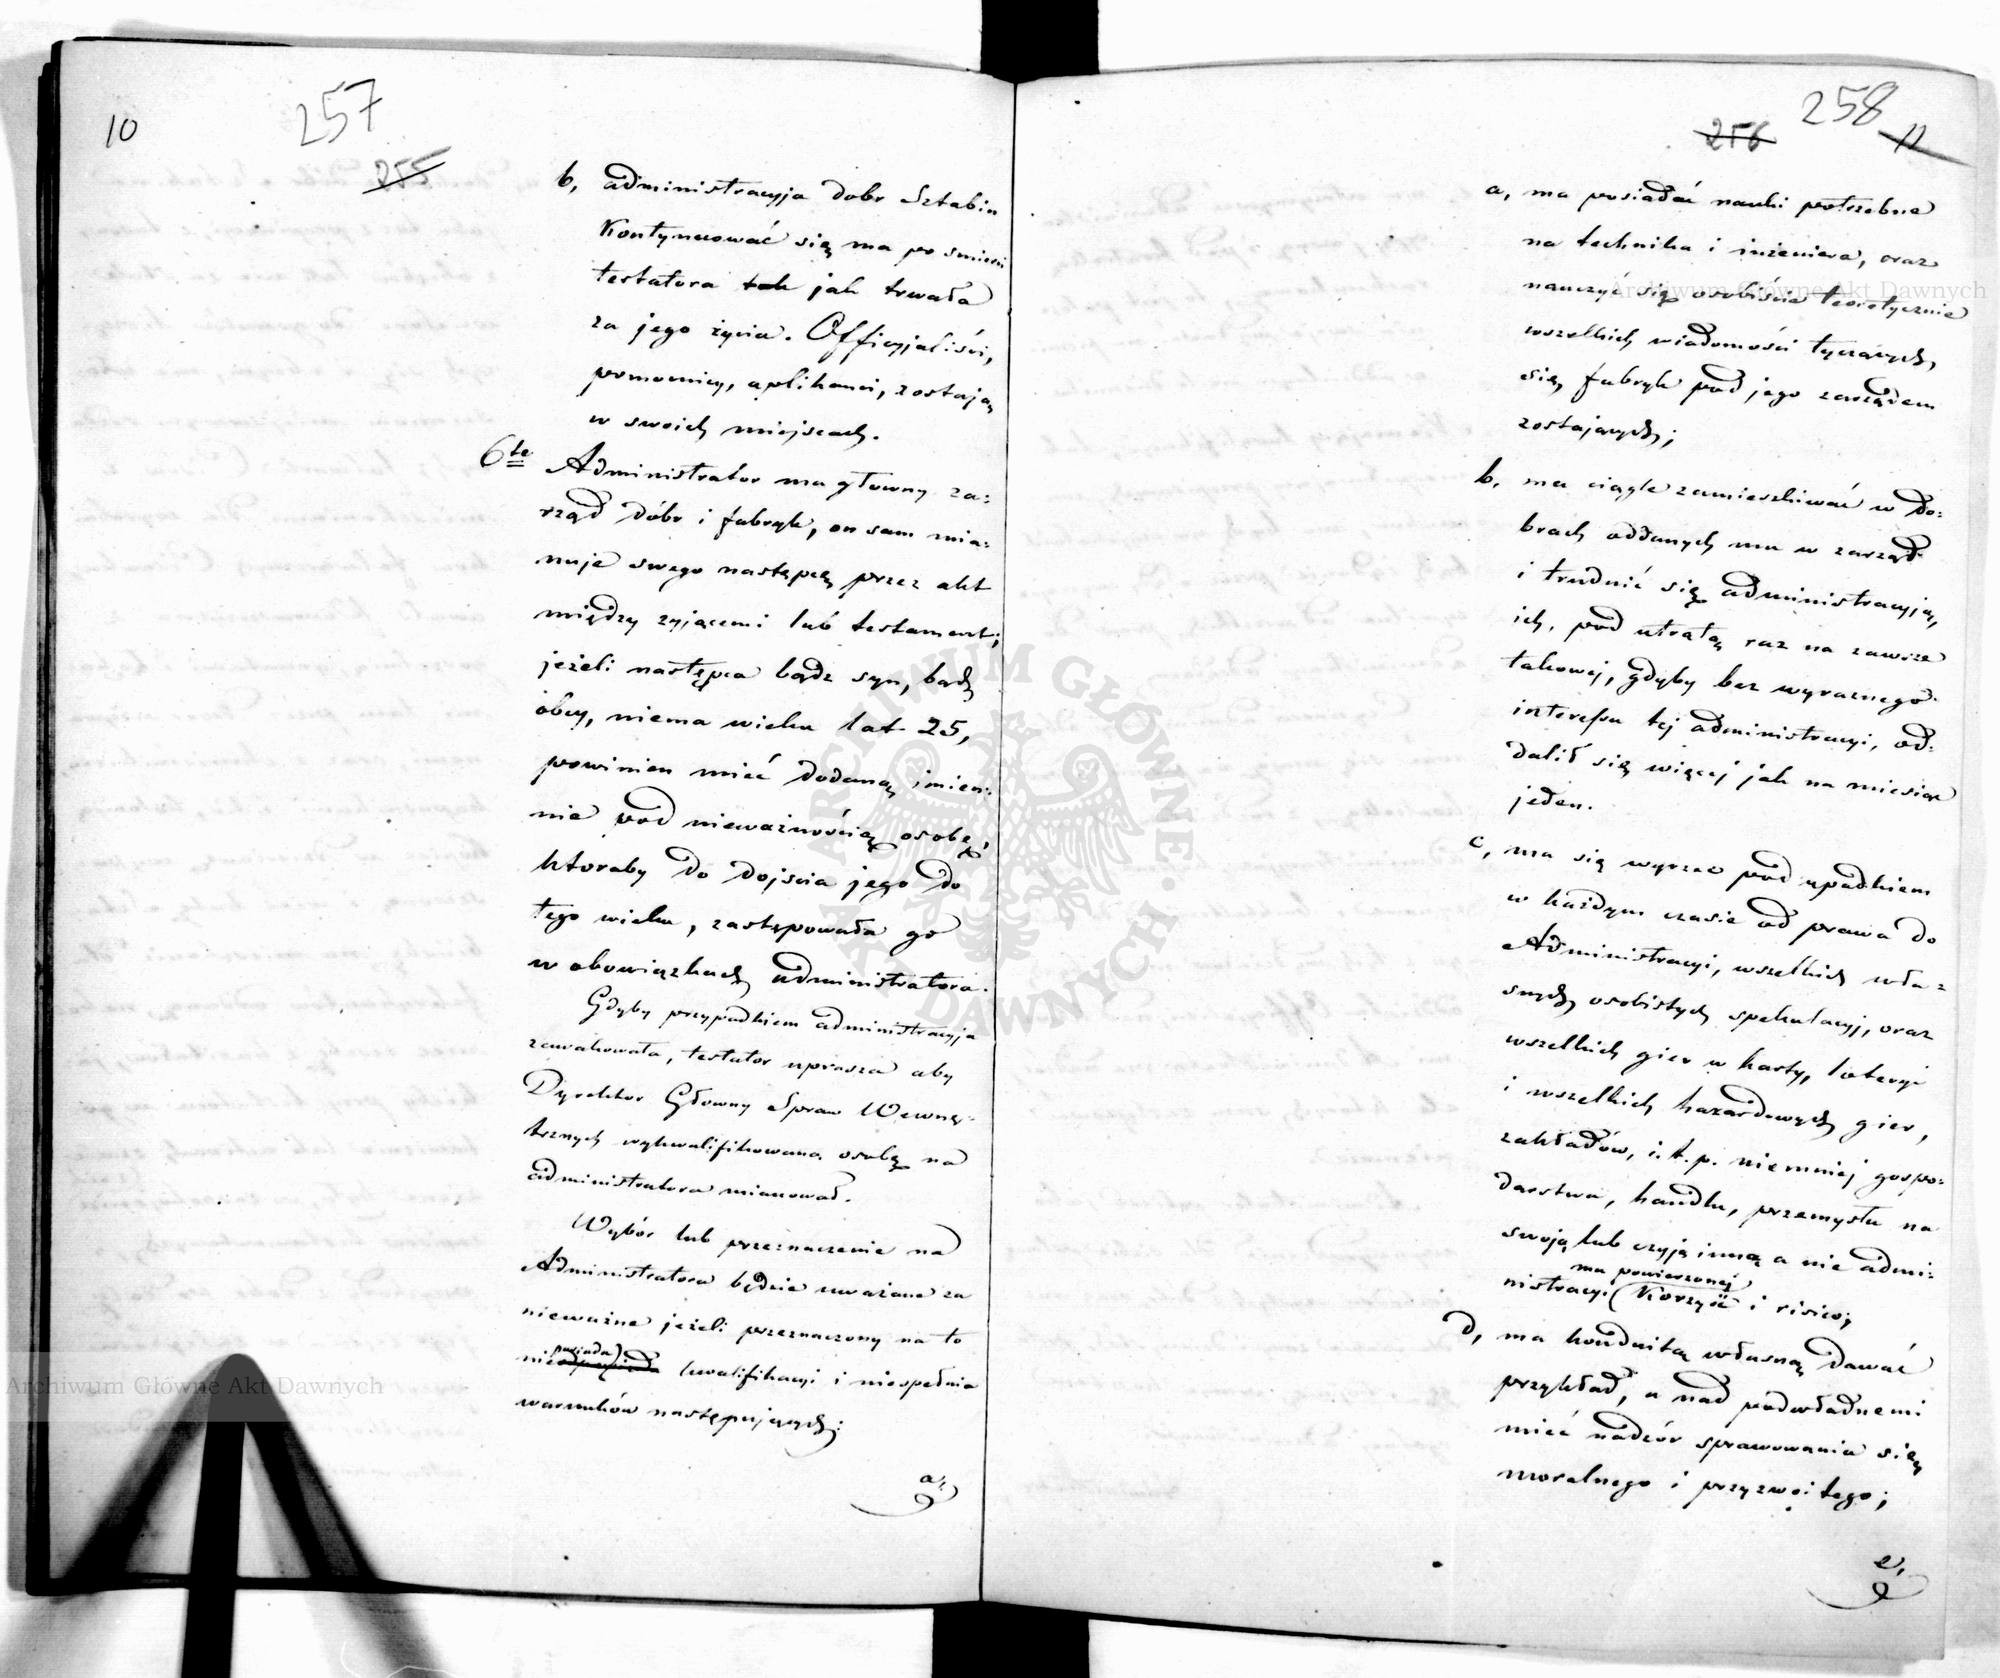 10
257
255
b, administracyja dobr Sztabin
Kontynuować się ma po smierci
testatora tak jak trwała
za jego życia. Officyjaliści,
pomocnicy, aplikanci, zostają
w swoich miejscach.
6te Administrator ma głowny za=
rząd dóbr i fabryk, on sam mia=
nuje swego następcę przez akt
między zyjącemi lub testament;
jeżeli następca bądz syn, bądz
obcy, niema wieku lat 25,
powinien mieć dodaną imien=
nie pod nieważnością osobę,
ktoraby do dojscia jego do
tego wieku, zastępowała go
w obowiązkach administratora.
Gdyby przypadkiem administracyja
zawakowała, testator uprasza aby
Dyrektor Głowny Spraw Wewnę=
trznych wykwalifikowaną osobę na
administratora mianował.
Wybór lub przeznaczenie na
Administratora będzie uważane za
nieważne jeżeli przeznaczony na to
posiada
nie kwalifikacyi i niespełnia
warunków następujących:
a,
258
256
11
a, ma posiadać nauki potrzebne
na technika i inżeniera, oraz
nauczyć się osobiście teoretycznie
wszelkich wiadomości tyczących
się fabryk pod jego zarządem
zostających;
b, ma ciągle zamieszkiwać w do=
brach oddanych mu w zarząd
i trudnić się administracyją
ich, pod utratą raz na zawsze
takowej, gdyby bez wyraznego
interessu tej administracyi, od=
dalił się więcej jak na miesiąc
jeden.
c, ma się wyrzec pod upadkiem
w każdym czasie od prawa do
Administracyi, wszelkich wła=
snych osobistych spekulacyj, oraz
wszelkich gier w karty, loteryi
i wszelkich hazardowych gier,
zakładów, i. t. p. niemniej gospo=
darstwa, handlu, przemysłu na
swoją lub czyją inną a nie admi=
ma powierzonej
nistracyi Korzyść i risico;
d, ma konduitą własną dawać
przykład, a nad podwładnemi
mieć nadzór sprawowania się
moralnego i przyzwoitego;
e,
Archiwum Główne Akt Dawnych
Archiwum Główne Akt Dawnych
ARCHIWUM GŁÓWNE AKT DAWNYCH